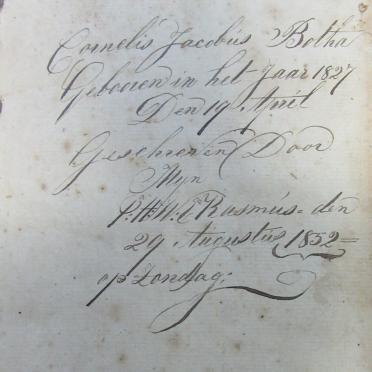 Cornelis Jacobus Botha
Gebooren in het Jaar 1827
Den 19 April
Geschreven Door
Myn
P.H.W. Erasmus den
29 Augustus 1852
op Zondag.